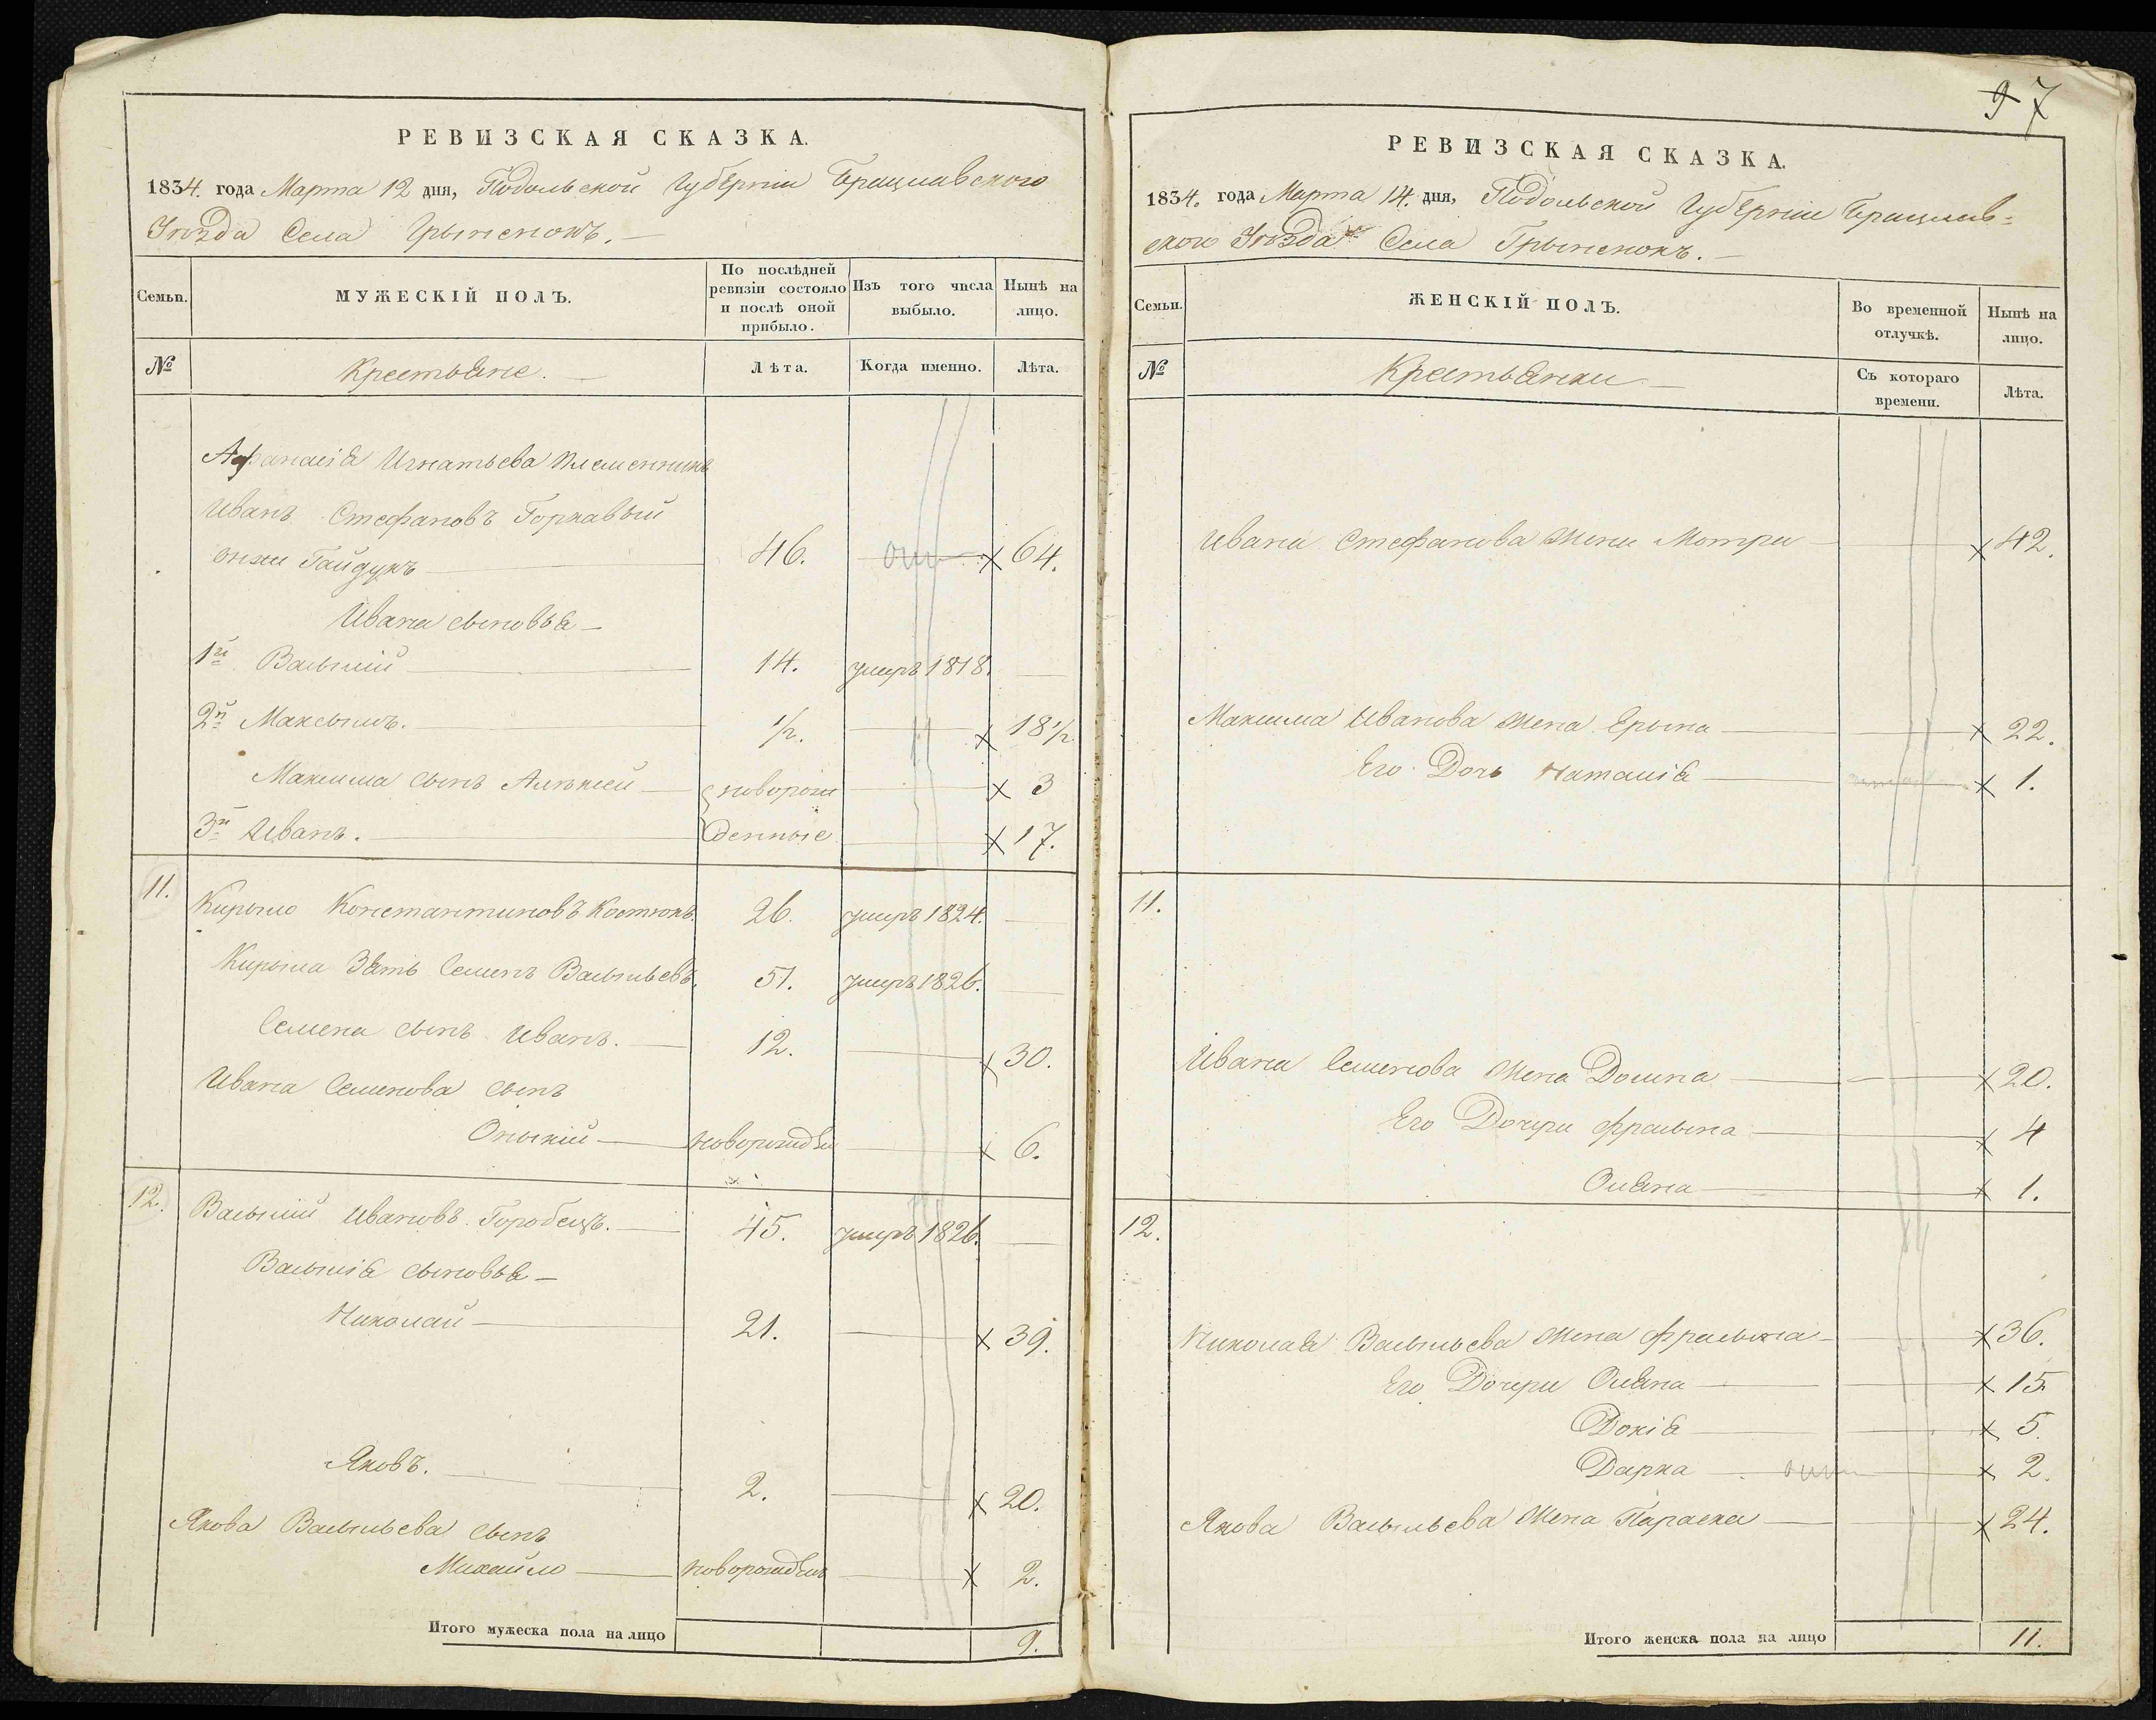 97
РЕВИЗСКАЯ СКАЗКА.
1834. года Марта 12 дня, Подольской Губерніи Брацлавского
Уѣзда Села Грыненокъ.
Семьи.
МУЖЕСКІЙ ПОЛЪ.
По послѣдней ревизіи состояло и послѣ оной прибыло.
Изъ того числа выбыло.
Нынѣ на лицо.
№
Крестьяне.
Лѣта.
Когда именно.
Лѣта.
Афанасія Игнатьева племенникъ
Иванъ Стефановъ Горкавый
онже Гайдукъ 46. х 64.
Ивана сыновья
1й Васылій 14. умеръ 1818.
2й Максымъ. 1/2. х 18 1/2
Максима сынъ Алексей новорож х 3
3й Иванъ. денные х 17.
11. Кирыло Константиновъ Костюкъ. 26. умеръ 1824.
Кирыла Зять Семенъ Васыльевъ. 51. умеръ 1826.
Семена сынъ Иванъ. 12. х 30.
Ивана Семенова сынъ
новорожден х 6.
12. Васылій Ивановъ Горобецъ. 45. умеръ 1826.
Васылія сыновья
Николай 21. х 39.
Яковъ. 2. х 20.
Якова Васыльева сынъ
Михайло новорожден х 2.
Итого мужеска пола на лицо 9.
РЕВИЗСКАЯ СКАЗКА.
1834. года Марта 14. дня, Подольской Губерніи Брацлав-
ского Уѣзда Села Грыненокъ.
Семьи.
ЖЕНСКІЙ ПОЛЪ.
Во временной отлучкѣ.
Нынѣ на лицо.
№
Крестьянки
Съ котораго времени.
Лѣта.
Ивана Стефанова жена Мотря х 42.
Максима Иванова жена Ерына х 22.
Его Дочь Наталія х 1.
11.
Ивана Семенова жена Домна х 20.
Его Дочери Фросына х 4
Оляна х 1.
12.
Николая Васыльева жена Фросына х 36.
Его Дочери Оляна х 15
Докія х 5.
Дарка х 2.
Якова Васыльева жена Параска х 24.
Итого женска пола на лицо 11.